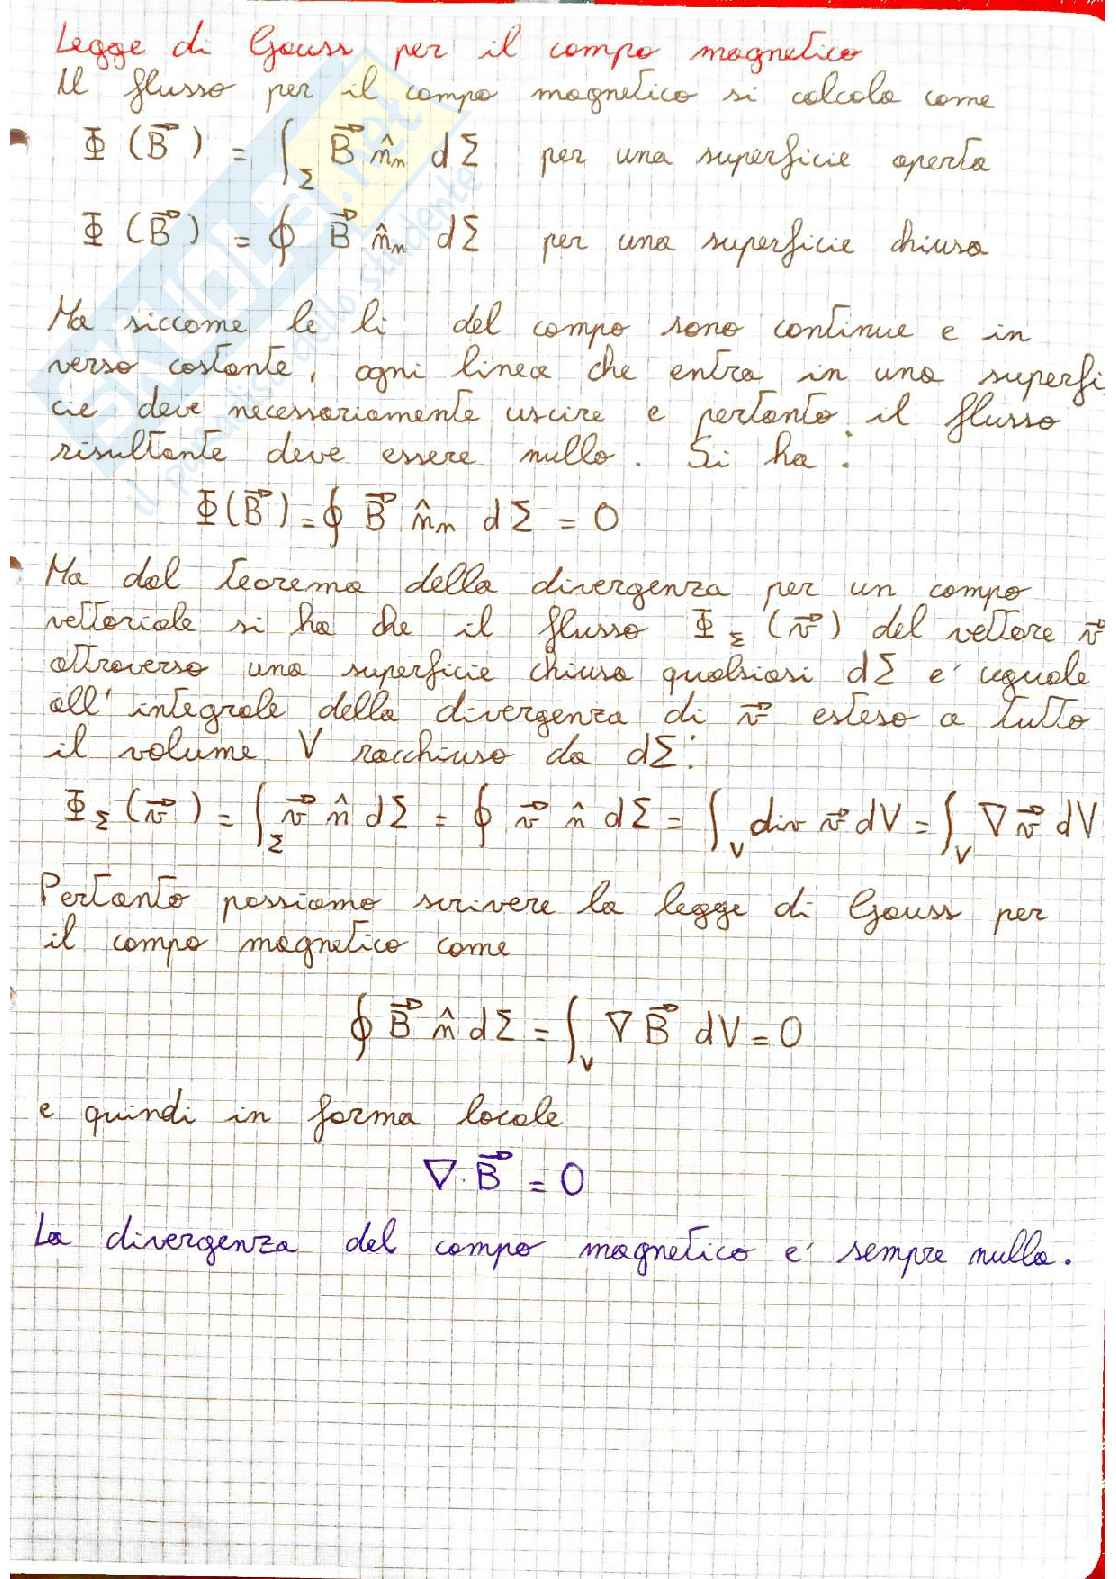 Legge di Gauss per il campo magnetico
Il flusso per il campo magnetico si calcola come
Φ (B⃗) = ∫_Σ B⃗ n̂ₙ dΣ per una superficie aperta
Φ (B⃗) = ∮ B⃗ n̂ₙ dΣ per una superficie chiusa
Ma siccome le li del campo sono continue e in
verso costante, ogni linea che entra in una superfi
cie deve necessariamente uscire e pertanto il flusso
risultante deve essere nullo. Si ha:
Φ(B⃗) = ∮ B⃗ n̂ₙ dΣ = 0
Ma dal teorema della divergenza per un campo
vettoriale si ha che il flusso Φ_Σ (v⃗) del vettore v⃗
attraverso una superficie chiusa qualsiasi dΣ e' uguale
all'integrale della divergenza di v⃗ esteso a tutto
il volume V racchiuso da dΣ:
Φ_Σ (v⃗) = ∫_Σ v⃗ n̂ dΣ = ∮ v⃗ n̂ dΣ = ∫_V div v⃗ dV = ∫_V ∇ v⃗ dV
Pertanto possiamo scrivere la legge di Gauss per
il campo magnetico come
∮ B⃗ n̂ dΣ = ∫_V ∇ B⃗ dV = 0
e quindi in forma locale
∇·B⃗ = 0
La divergenza del campo magnetico e' sempre nulla.